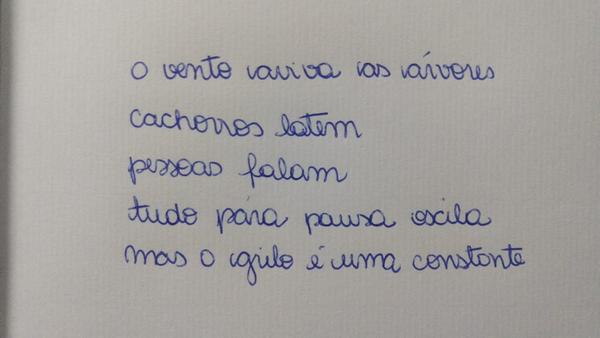 o vento aviva as árvores
cachorros latem
pessoas falam
tudo pára pausa oscila
mas o grilo é uma constante